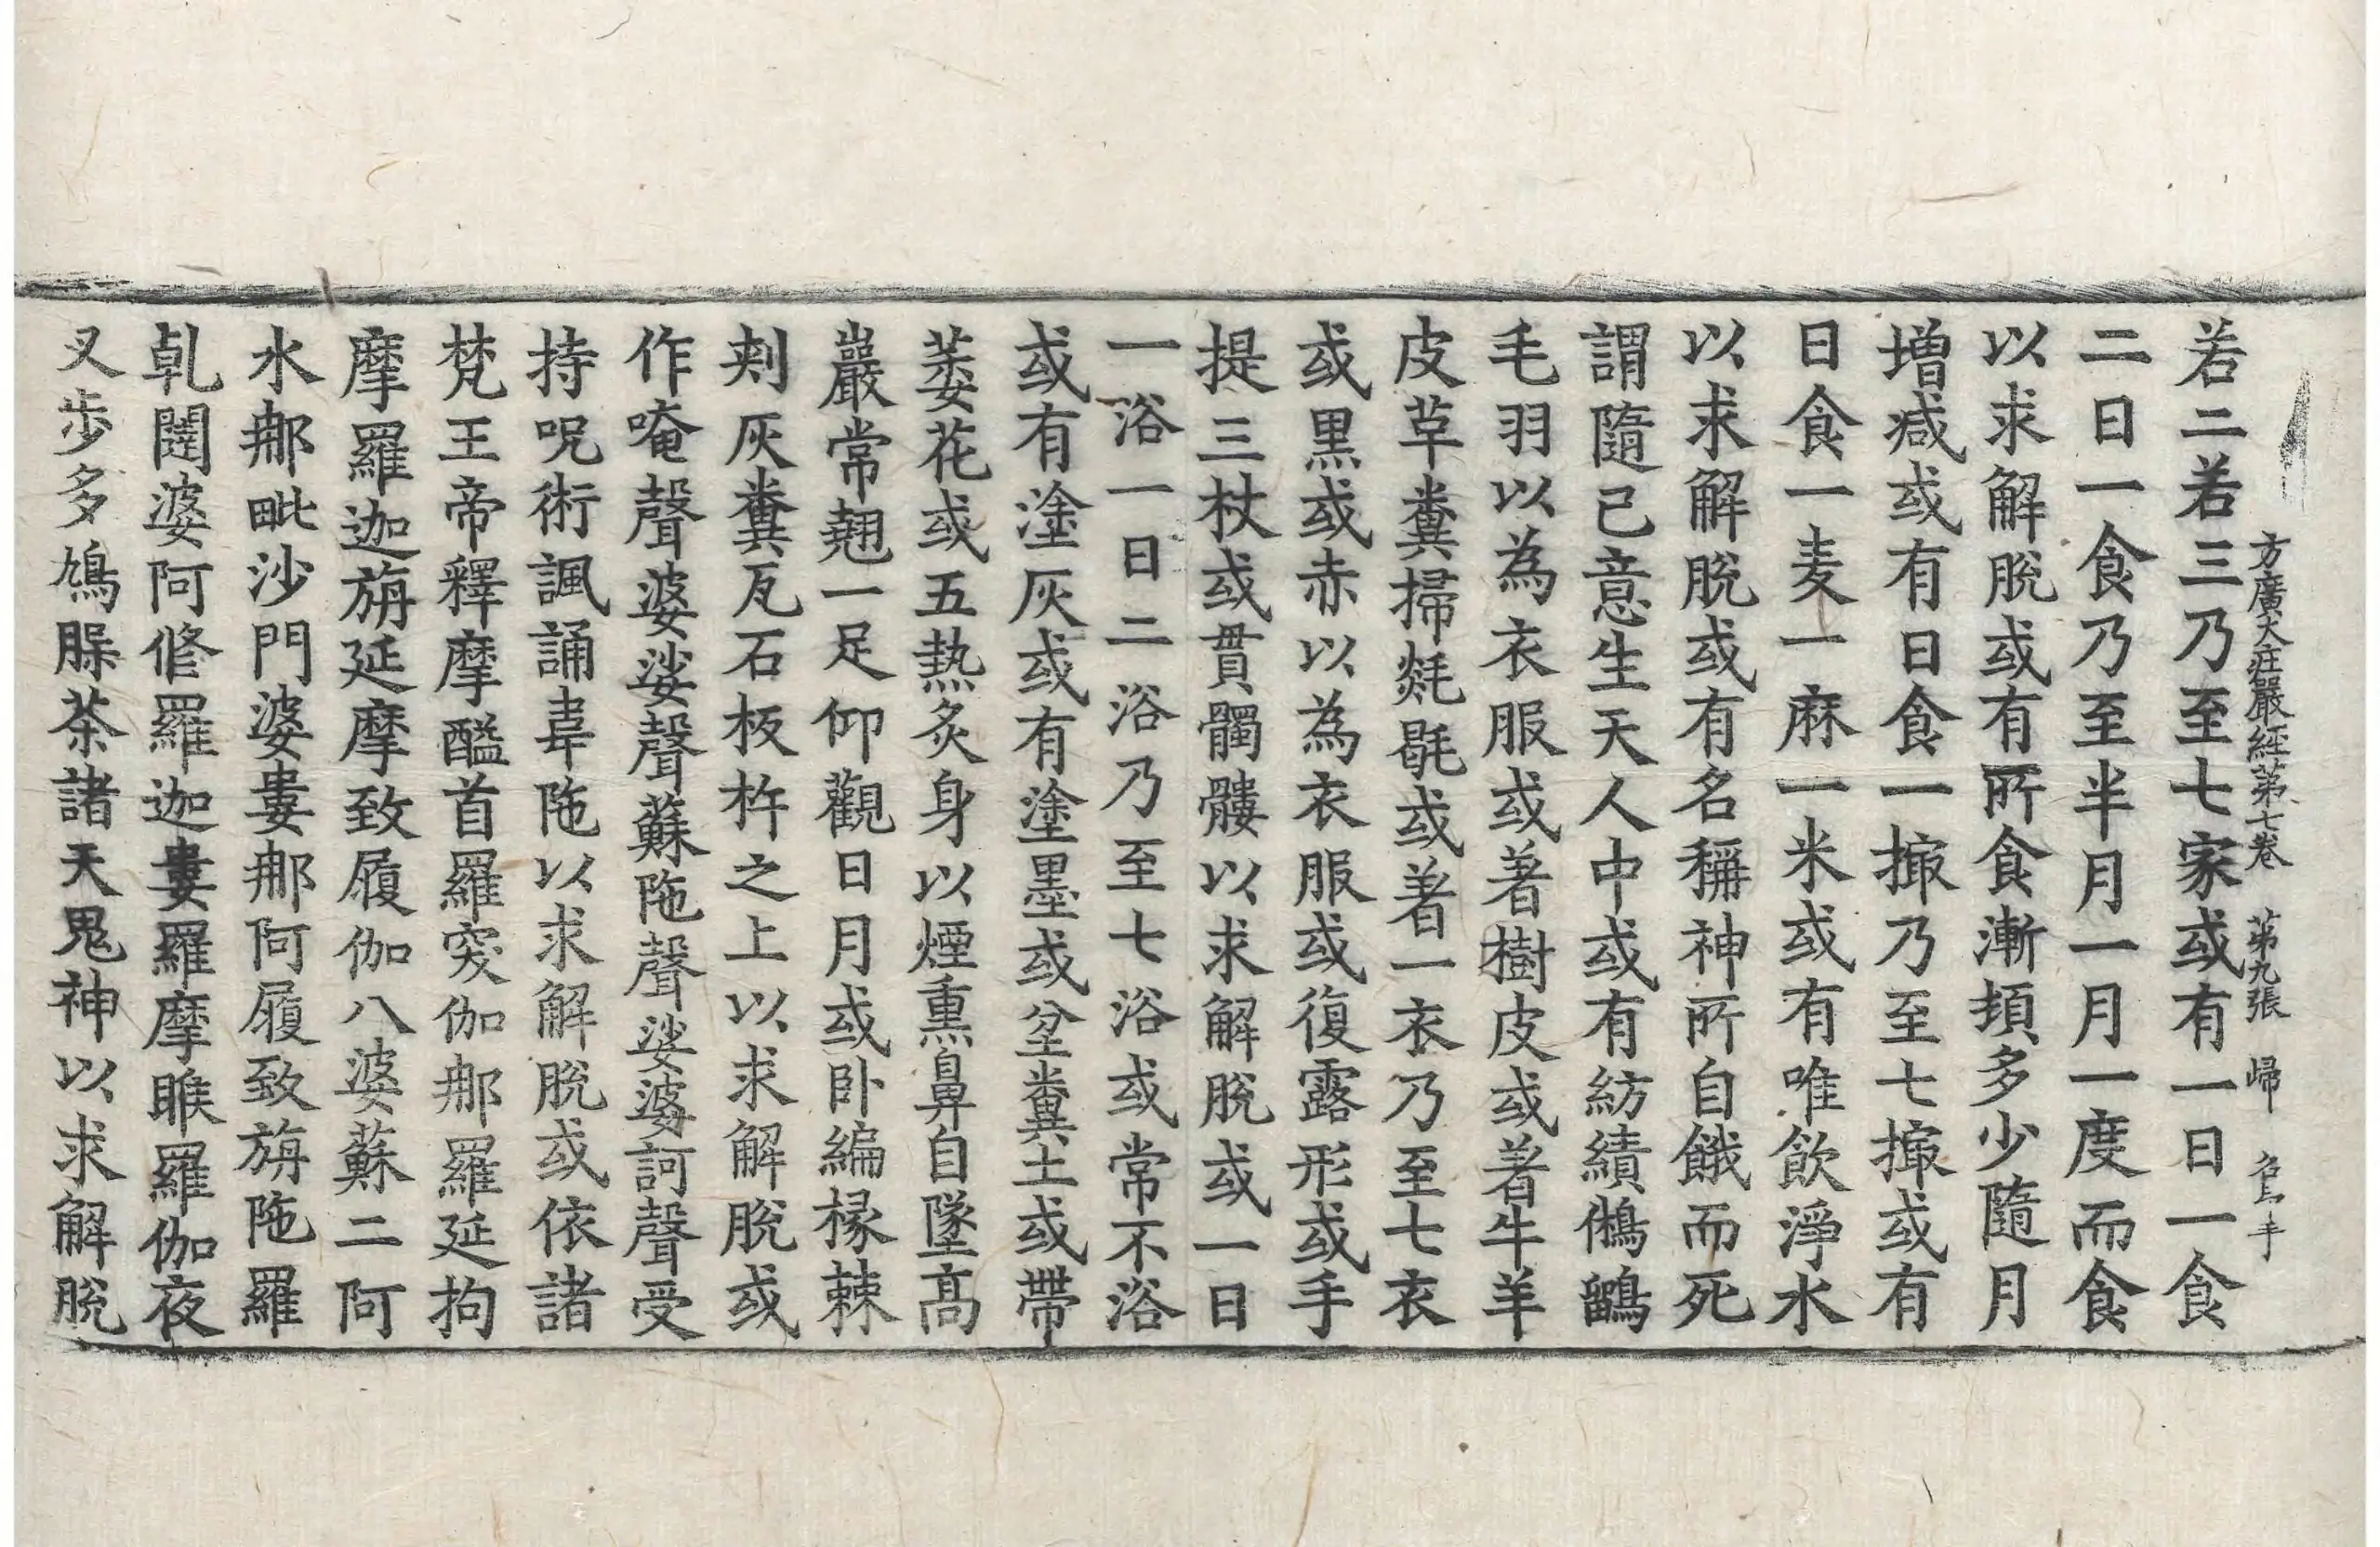 方廣大莊嚴經第七卷 第九張 歸
若二若三乃至七家或有一日一食
二日一食乃至半月一月一度而食
以求解脫或有所食漸頓多少隨月
增減或有日食一撮乃至七撮或有
日食一麦一麻一米或有唯飲淨水
以求解脫或有名稱神所自餓而死
謂隨己意生天人中或有紡績鵂鶹
毛羽以為衣服或著樹皮或著牛羊
皮草糞掃毼或著一衣乃至七衣
或黑或赤以為衣服或復露形或手
提三杖或貫髑髏以求解脫或一日
一浴一日二浴乃至七浴或常不浴
或有塗灰或有塗墨或坌糞土或帶
萎花或五熱炙身以煙熏鼻自墜高
巖常翹一足仰觀日月或卧編椽棘
刾灰糞瓦石板杵之上以求解脫或
作唵聲婆娑聲蘇陁聲娑婆訶聲受
持呪術諷誦韋陁以求解脫或依諸
梵王帝釋摩醯首羅突伽那羅延拘
摩羅迦旃延摩致履伽八婆蘇二阿
水那毗沙門婆婁那阿履致旃陁羅
乹闥婆阿修羅迦婁羅摩睺羅伽夜
叉步多鳩槃茶諸天鬼神以求解脫